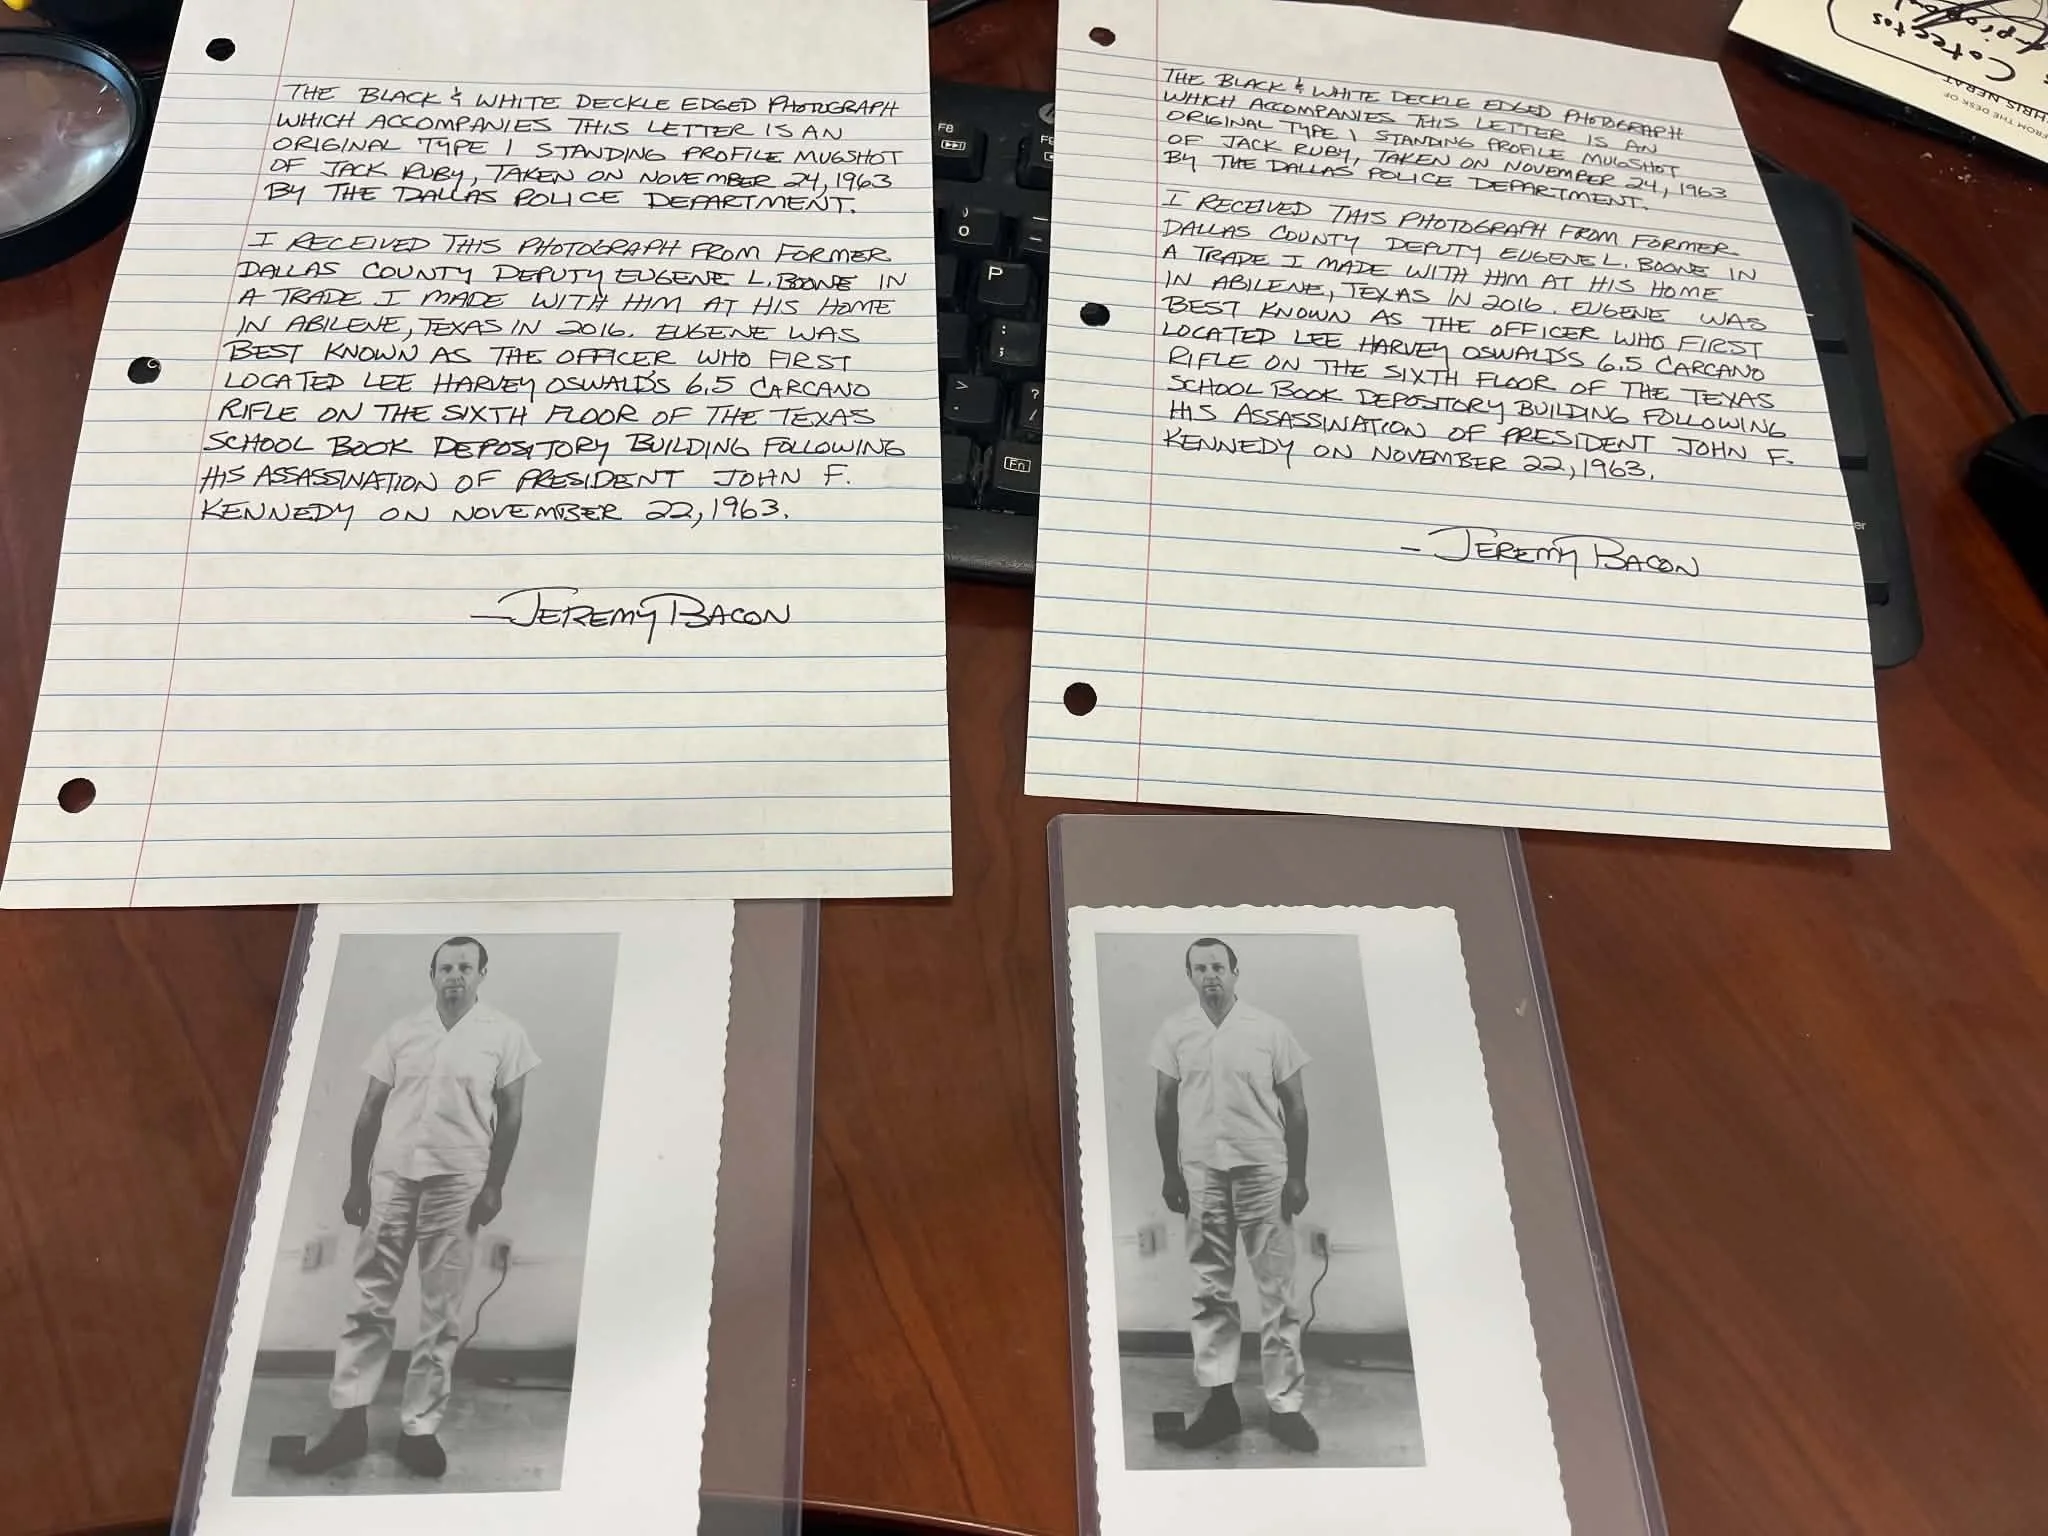 THE BLACK & WHITE DECKLE EDGED PHOTOGRAPH
WHICH ACCOMPANIES THIS LETTER IS AN
ORIGINAL TYPE 1 STANDING PROFILE MUGSHOT
OF JACK RUBY, TAKEN ON NOVEMBER 24, 1963
BY THE DALLAS POLICE DEPARTMENT.
I RECEIVED THIS PHOTOGRAPH FROM FORMER
DALLAS COUNTY DEPUTY EUGENE L. BOONE IN
A TRADE I MADE WITH HIM AT HIS HOME
IN ABILENE, TEXAS IN 2016. EUGENE WAS
BEST KNOWN AS THE OFFICER WHO FIRST
LOCATED LEE HARVEY OSWALD'S 6.5 CARCANO
RIFLE ON THE SIXTH FLOOR OF THE TEXAS
SCHOOL BOOK DEPOSITORY BUILDING FOLLOWING
HIS ASSASSINATION OF PRESIDENT JOHN F.
KENNEDY ON NOVEMBER 22, 1963.
— JEREMY BACON
THE BLACK & WHITE DECKLE EDGED PHOTOGRAPH
WHICH ACCOMPANIES THIS LETTER IS AN
ORIGINAL TYPE 1 STANDING PROFILE MUGSHOT
OF JACK RUBY, TAKEN ON NOVEMBER 24, 1963
BY THE DALLAS POLICE DEPARTMENT.
I RECEIVED THIS PHOTOGRAPH FROM FORMER
DALLAS COUNTY DEPUTY EUGENE L. BOONE IN
A TRADE I MADE WITH HIM AT HIS HOME
IN ABILENE, TEXAS IN 2016. EUGENE WAS
BEST KNOWN AS THE OFFICER WHO FIRST
LOCATED LEE HARVEY OSWALD'S 6.5 CARCANO
RIFLE ON THE SIXTH FLOOR OF THE TEXAS
SCHOOL BOOK DEPOSITORY BUILDING FOLLOWING
HIS ASSASSINATION OF PRESIDENT JOHN F.
KENNEDY ON NOVEMBER 22, 1963.
- JEREMY BACON
F8
)
0
P
:
;
>
.
?
/
Fn
FROM THE DESK OF
HRIS NERAT